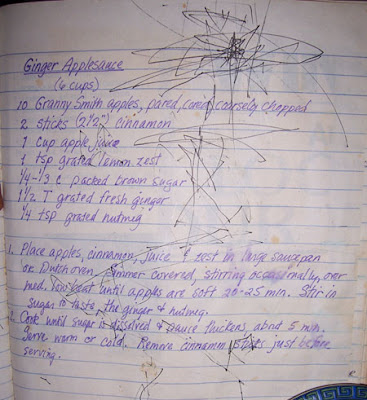 Ginger Applesauce
(6 cups)
10 Granny Smith apples, pared, cored, coarsely chopped
2 sticks (2½") cinnamon
1 cup apple juice
1 tsp grated lemon zest
¼-⅓ c packed brown sugar
1½ T grated fresh ginger
¼ tsp grated nutmeg
1. Place apples, cinnamon, juice & zest in large saucepan
or Dutch oven. Simmer covered, stirring occasionally, over
med. low heat until apples are soft 20-25 min. Stir in
sugar to taste, the ginger & nutmeg.
2. Cook until sugar is dissolved & sauce thickens, about 5 min.
Serve warm or cold. Remove cinnamon sticks just before
serving.